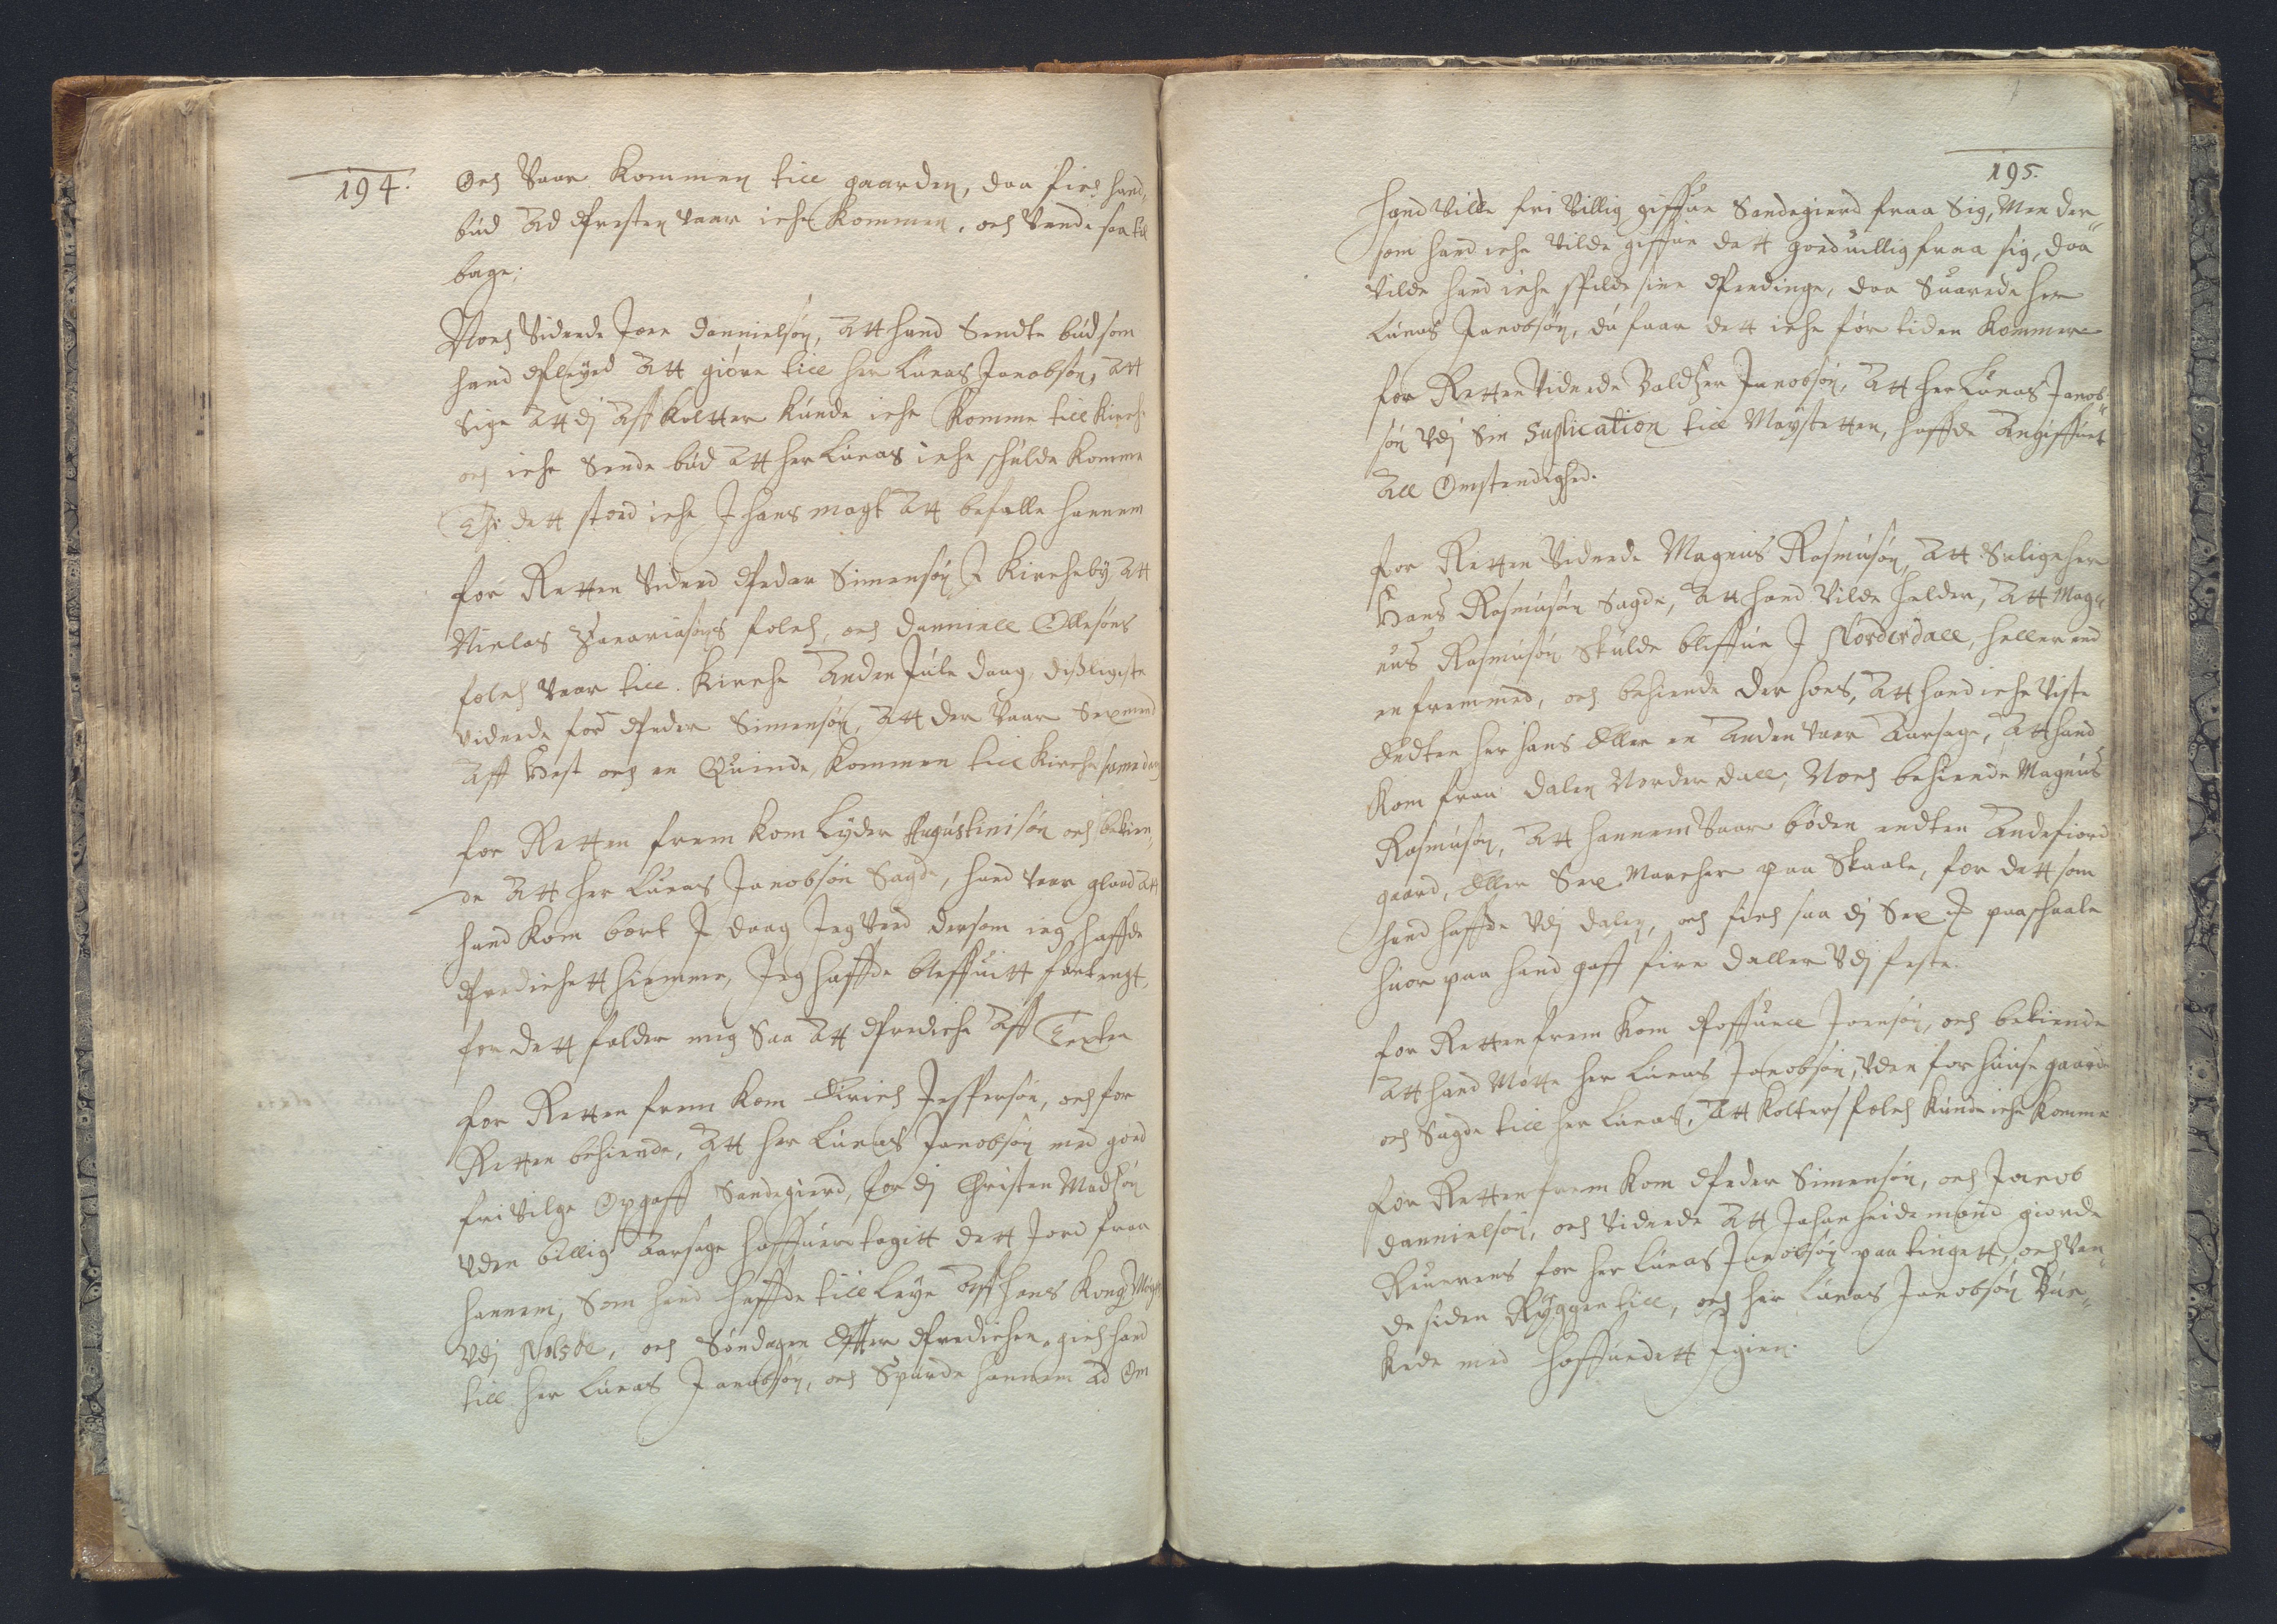 194.
Och Vaar Kommen till gaarden, daa fich hand
bud Ad Presten vaar iche Kommen, och Vende saa til
bage;
Noch Vidnede Joen Dannielsøn, Att hand Sendte bud som
hand Pleyed Att giøre till her Lucas Jacobsøn, Att
Sige Att dj Aff Koltter Kunde iche Komme till Kirch.
och iche Sende bud Att her Lucas iche schulde Komme
Thi dett stoed iche J hans magt Att befalle hannem
for Retten Vidned Peder Simensøn J Kircheby Att
Niclas Zacariasøns folch, och Danniell Ollesøns
folch Vaar till Kirche Anden Jule daag, disligeste
vidnede for Peder Simensøn, Att der Vaar Sexmend
Aff Hest och en Quinde Kommen till Kirche samme dag
for Retten frem kom Lyder Augustinisøn och bekien¬
de Att her Lucas Jacobsøn Sagde, hand vaar glaad Att
hand Kom bort J daag Jeg Veed dersom ieg haffde
Predichett hiemme, Jeg haffde bleffuitt forlengt,
for dett falder mig Saa Att Prediche Aff Texten
for Retten frem kom Dirich Jespersøn, och for
Retten bekiende, Att her Lucas Jacobsøn med goed
fri Vilge Opgaff Sandegierd, for dj Christen Madsøn
Vden billig Aarsage haffuer tagitt dett Jord fraa
hannem, Som hand haffde till Leye Aff hans Kong May:
Vdj Nolsøe, och Søndagen Effter Predichen, gich hand
till her Lucas Jacobsøn, och Spurde hannem Ad Om
195.
hand Ville fri Villig giffue Sandegierd fraa Sig, Men der¬
som hand iche Vilde giffue dett goeduillig fraa sig, daa
Vilde hand iche spilde sine Pendinge, daa Suarede her
Lucas Jacobsøn, du faar dett iche før tiden Kommer
for Retten Vidnede Baldtzer Jacobsøn, Att her Lucas Jacob¬
søn Vdj Sin Suplication till Maystetten, haffde Angiffuet
All Omstendighed.
for Retten Vidnede Magnus Rasmusøn, Att Salige her
Hans Rasmusøn Sagde, Att hand Vilde helder, Att Mag¬
nus Rasmusøn Skulde bliffue J Norderdall, heller end
en fremmed, och bekiende der hoes, Att hand iche Viste
Endten her hans Eller en Anden Vaar Aarsage, Att hand
Kom fraa Dalen Norderdall, Noch bekiende Magnus
Rasmusøn, Att hannem Vaar bøden endten Andefiord
gaard, Eller Sex Marcher paa Skaale, for dett som
hand haffde Vdj Dalen, och fich saa dj Sex J paaschaale
huor paa hand gaff fire Daller Vdj feste.
for Retten frem kom Poffuell Joensøn, och bekiende
Att hand Møtte her Lucas Jacobsøn, Vden for huuse gaard
och Sagde till her Lucas, Att Kolters folch Kunde iche Komme
for Retten frem Kom Peder Simensøn, och Jacob
Dannielsøn, och Vidnede Att Johan heidemand giorde
Reuerens for her Lucas Jacobsøn paa tingett, och Ven¬
de siden Ryggen till, och her Lucas Jacobsøn Buc¬
kede med Hoffuedett Jgien.